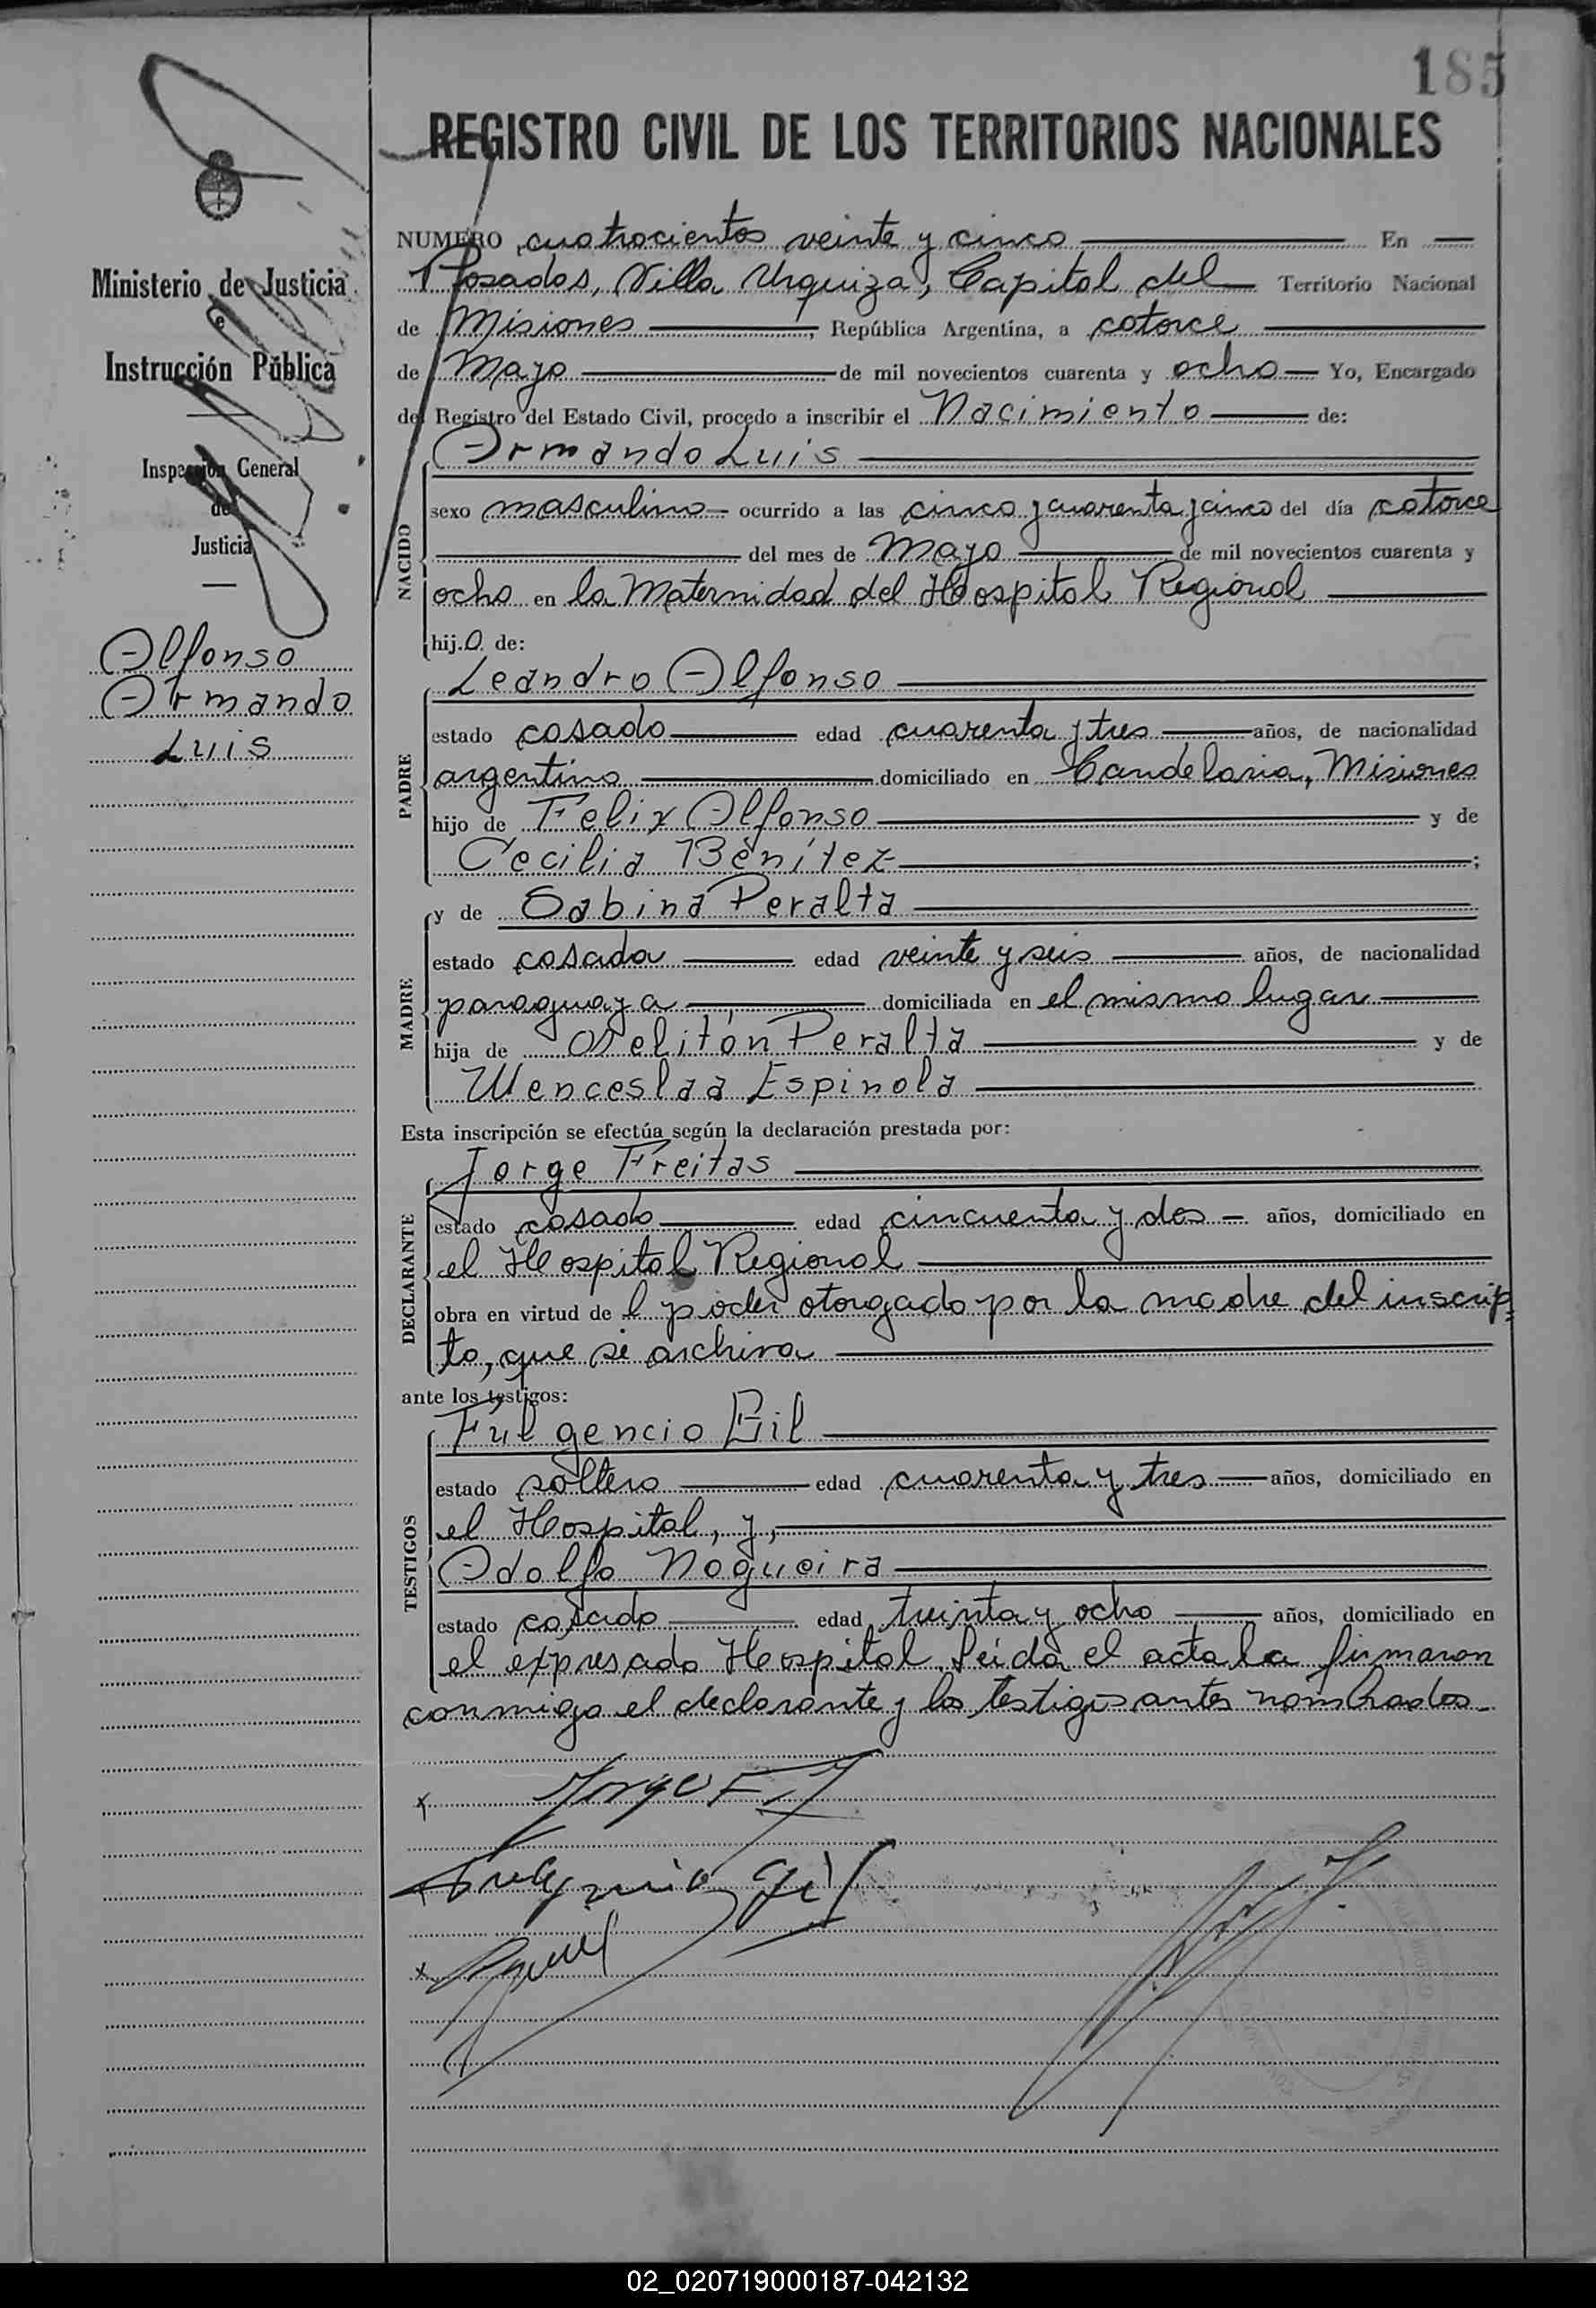 185
REGISTRO CIVIL DE LOS TERRITORIOS NACIONALES
Ministerio de Justicia
e
Instrucción Pública
Inspección General
de
Justicia
Alfonso
Armando
Luis
NUMERO cuatrocientos veinte y cinco En
Posadas, Villa Urquiza, Capital del Territorio Nacional
de Misiones, República Argentina, a catorce
de Mayo de mil novecientos cuarenta y ocho Yo, Encargado
del Registro del Estado Civil, procedo a inscribir el Nacimiento de:
Armando Luis
NACIDO
sexo masculino ocurrido a las cinco y cuarenta y cinco del día catorce
del mes de Mayo de mil novecientos cuarenta y
ocho en la Maternidad del Hospital Regional
hijo de:
Leandro Alfonso
PADRE
estado casado edad cuarenta y tres años, de nacionalidad
argentino domiciliado en Candelaria, Misiones
hijo de Felix Alfonso y de
Cecilia Benítez;
y de Sabina Peralta
MADRE
estado casada edad veinte y seis años, de nacionalidad
paraguaya domiciliada en el mismo lugar
hija de Melitón Peralta y de
Wenceslaa Espinola
Esta inscripción se efectúa según la declaración prestada por:
Jorge Freitas
DECLARANTE
estado casado edad cincuenta y dos años, domiciliado en
el Hospital Regional
obra en virtud del poder otorgado por la madre del inscrip
to, que se archiva
ante los testigos:
Fulgencio Gil
TESTIGOS
estado soltero edad cuarenta y tres años, domiciliado en
el Hospital, y,
Adolfo Nogueira
estado casado edad treinta y ocho años, domiciliado en
el expresado Hospital. Leída el acta la firmaron
conmigo el declarante y los testigos antes nombrados
x Jorge F
Fulgencio Gil
x
02_020719000187-042132